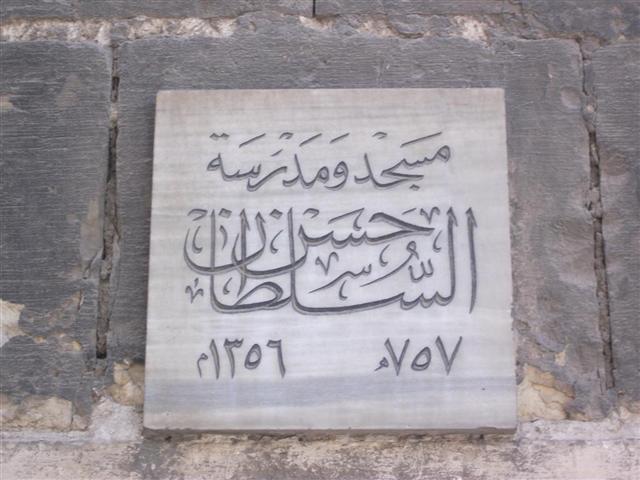 مسجد ومدرسة
السلطان حسن
٧٥٧ھ ١٣٥٦م